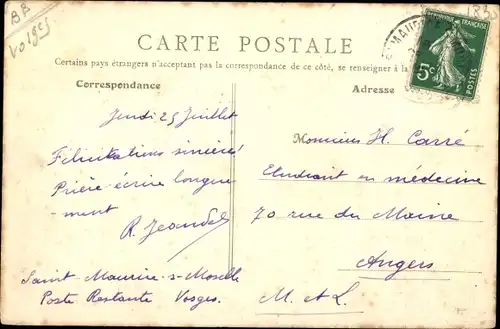 BB
Vosges
CARTE POSTALE
Certains pays étrangers n'acceptant pas la correspondance de ce côté, se renseigner à la
Correspondance
Adresse
RÉPUBLIQUE FRANÇAISE
5c
POSTES
Jeudi 25 Juillet
Félicitations sincères!
Prière écrire longue-
-ment
R. Jeandel
Saint-Maurice-s-Moselle
Poste Restante Vosges.
Monsieur H. Carré
Etudiant en médecine
70 rue du Maine
Angers
M. et L.